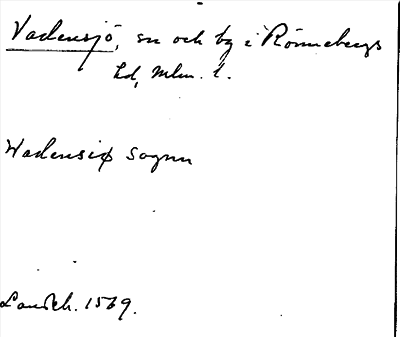 Vadensjö, sn och by i Rönnebergs
hd, Mlm. l.
Wadensiø Sognn
Landeb. 1569.